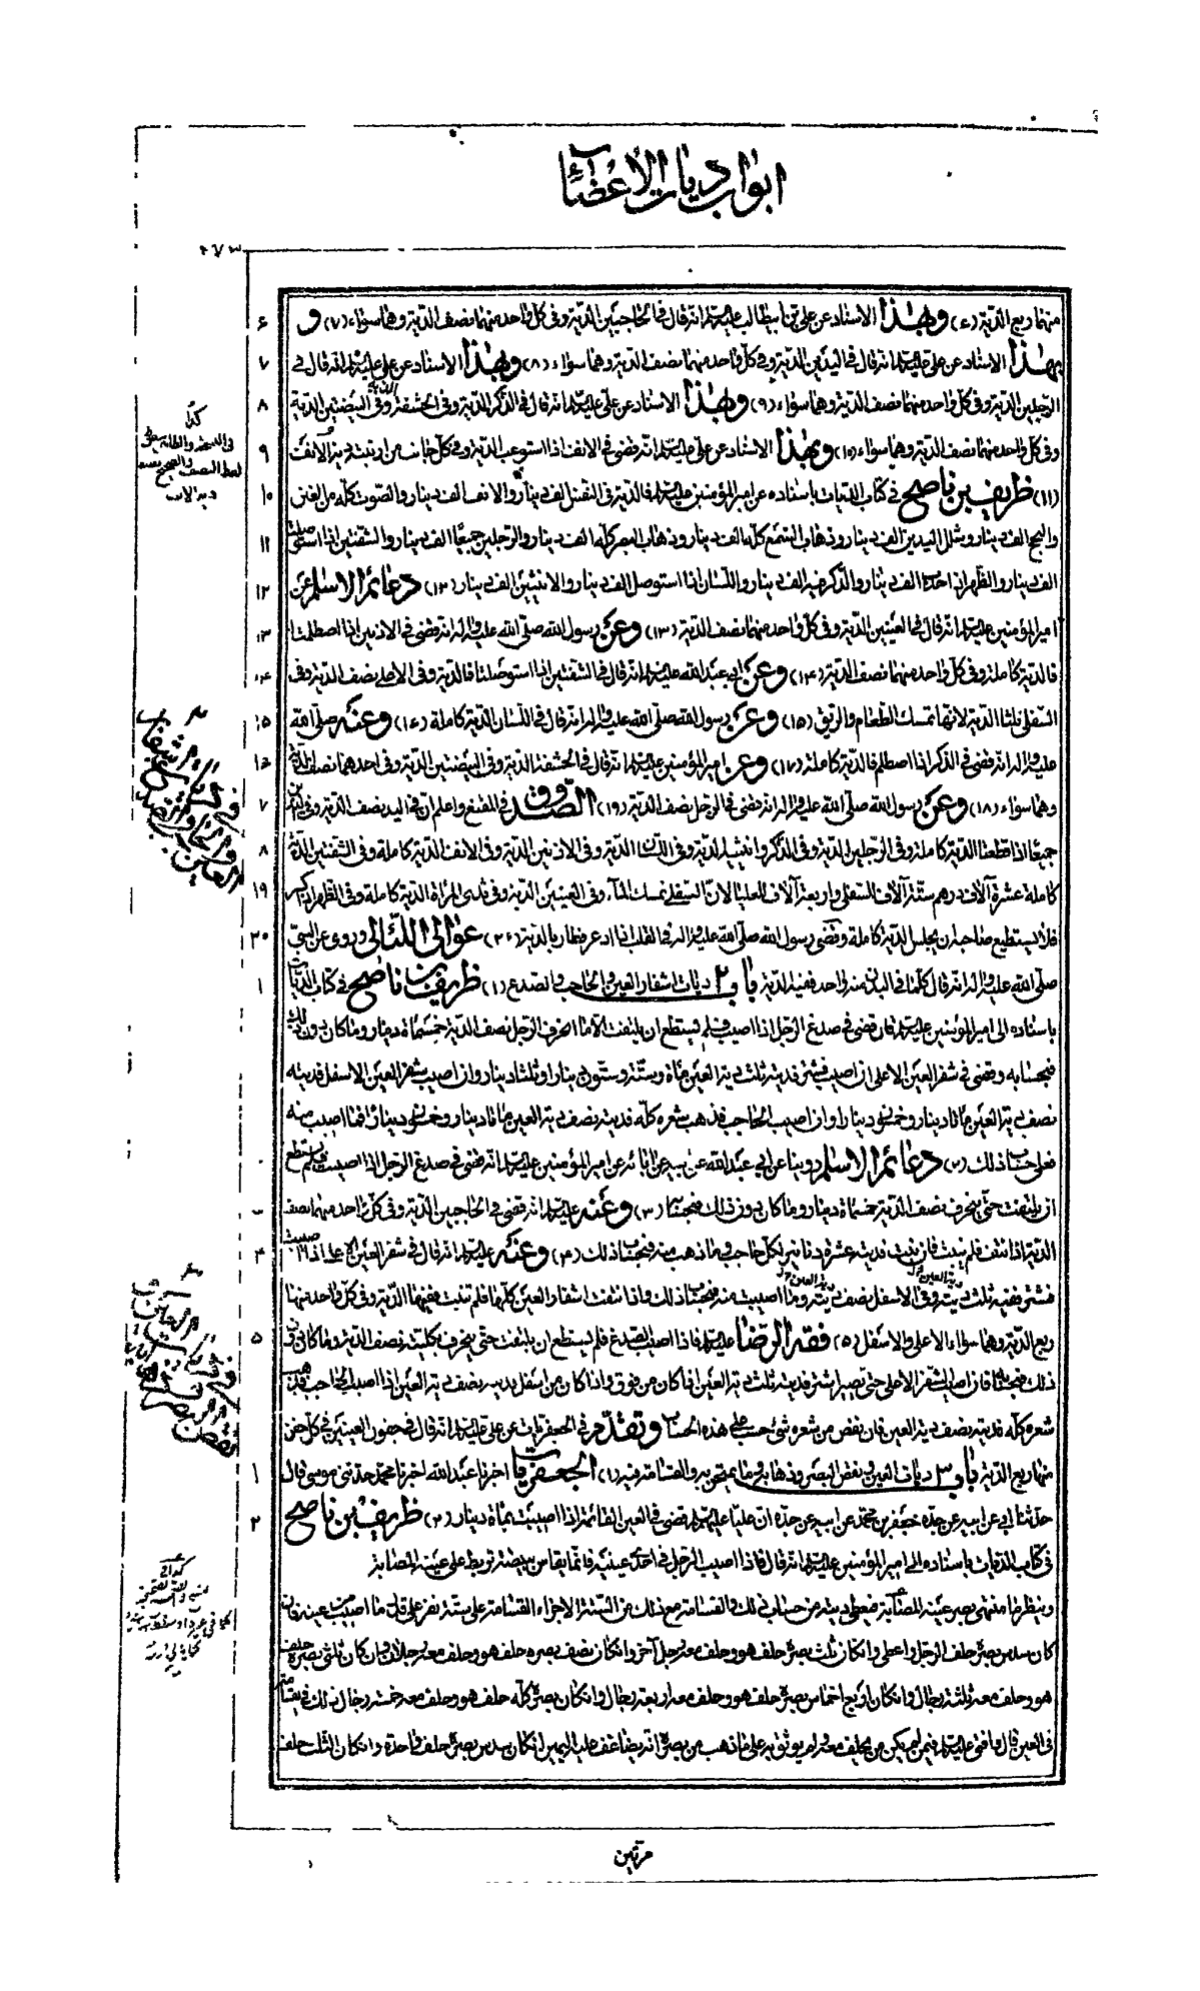 ابواب ديات الأعضاء
٢٧٣
منهما ربع الدية (٦) وبهذا الاسناد عن علي بن ابيطالب عليه السلم انه قال في الحاجبين الدية وفي كل واحد منهما نصف الدية وهما سواء (٧) و
بهذا الاسناد عن علي عليه السلم انه قال في اليدين الدية وفي كل واحد منهما نصف الدية وهما سواء (٨) وبهذا الاسناد عن علي عليه السلم انه قال في
الرجلين الدية وفي كل واحد منهما نصف الدية وهما سواء (٩) وبهذا الاسناد عن علي عليه السلم انه قال في الذكر الدية وفي الحشفة وفي البيضتين الدية
وفي كل واحد منهما نصف الدية وهما سواء (١٠) وبهذا الاسناد عن علي عليه السلم انه قضى في الانف اذا استوعب الدية وفي كل جانب من ارنبته دية الانف
(١١) ظريف بن ناصح في كتاب الديات باسناده عن امير المؤمنين عليه السلم قال الدية في النفس الف دينار والانف الف دينار والصوت كله من الغنن
والبحح الف دينار وشلل اليدين الف دينار وذهاب السمع كله الف دينار وذهاب البصر كله الف دينار والرجلين جميعا الف دينار والشفتين اذا استوصلت
الف دينار والظهر اذا احدب الف دينار والذكر فيه الف دينار واللسان اذا استوصل الف دينار والانثيين الف دينار (١٢) دعائم الاسلام عن
امير المؤمنين عليه السلم انه قال في العينين الدية وفي كل واحد منهما نصف الدية (١٣) وعن رسول الله صلى الله عليه واله انه قضى في الاذنين اذا اصطلمتا
فالدية كاملة وفي كل واحد منهما نصف الدية (١٤) وعن ابي عبد الله عليه السلم انه قال في الشفتين اذا استوصلتا فالدية وفي الاعلى نصف الدية وفي
السفلى ثلثا الدية لانها تمسك الطعام والريق (١٥) وعن رسول الله صلى الله عليه واله انه قال في اللسان الدية كاملة (١٦) وعنه صلى الله
عليه واله انه قضى في الذكر اذا اصطلم فالدية كاملة (١٧) وعن امير المؤمنين عليه السلم انه قال في الحشفة الدية وفي البيضتين الدية وفي احدهما نصف الدية
وهما سواء (١٨) وعن رسول الله صلى الله عليه واله انه قضى في الرجل نصف الدية (١٩) الصدوق في المقنع واعلم ان في اليد نصف الدية وفي اليدين
جميعا اذا قطعتا الدية كاملة وفي الرجلين الدية وفي الذكر وانثييه الدية وفي اللسان الدية وفي الاذنين الدية وفي الانف الدية كاملة وفي الشفتين الدية
كاملة عشرة آلاف درهم ستة آلاف للسفلى واربعة آلاف للعليا لان السفلى تمسك الماء وفي العينين الدية وفي ثدي المرأة الدية كاملة وفي الظهر اذا كسر
فلا يستطيع صاحبه ان يجلس الدية كاملة وقضى رسول الله صلى الله عليه واله في القلب اذا ادعر فطار بالدية (٢٠) عوالي اللئالي وروى عن النبي
صلى الله عليه واله انه قال كلما في البدن منه واحد ففيه الدية باب ٢ ديات اشفار العين والحاجب والصدغ (١) ظريف بن ناصح في كتاب الديات
باسناده الى امير المؤمنين عليه السلم قال قضى في صدغ الرجل اذا اصيب فلم يستطع ان يلتفت الا ما انحرف الرجل نصف الدية خمسمأة دينار وما كان دون ذلك
فبحسابه وقضى في شفر العين الاعلى ان اصيب فشتر فديته ثلث دية العين مأة وستة وستون دينارا وثلثا دينار وان اصيب شفر العين الاسفل فديته
نصف دية العين مأتا دينار وخمسون دينارا وان اصيب الحاجب فذهب شعره كله فديته نصف دية العين مأتا دينار وخمسون دينارا فما اصيب منه
فعلى حساب ذلك (٢) دعائم الاسلام روينا عن ابي عبد الله عن ابيه عن ابائه عن امير المؤمنين عليه السلم انه قضى في صدغ الرجل اذا اصيب فلم يستطع
ان يلتفت حتى ينحرف نصف الدية خمسمأة دينار وما كان دون ذلك فبحسابه (٣) وعنه عليه السلم انه قضى في الحاجبين الدية وفي كل واحد منهما نصف
الدية اذا نتف فلم ينبت فان نبت فديته عشرة دنانير لكل حاجب وما ذهب منه فبحساب ذلك (٤) وعنه عليه السلم انه قال في شفر العين الاعلى اذا اصيب
فشتر ففيه ثلث ديته وفي الاسفل نصف ديته وما اصيب منه فبحساب ذلك فاذا نتفت اشفار العين كلها فلم تنبت ففيها الدية وفي كل واحد منهما
ربع الدية وهما سواء الاعلى والاسفل (٥) فقه الرضا عليه السلم فاذا اصيب الصدغ فلم يستطع ان يلتفت حتى ينحرف بكليته نصف الدية وما كان دون
ذلك فبحسابه فان اصيب الشفر الاعلى حتى يصير اشتر فديته ثلث دية العين اذا كان من فوق واذا كان من اسفل فديته نصف دية العين اذا اصيب الحاجب فذهب
شعره كله فديته نصف دية العين فان نقص من شعره شئ حسب على هذه الحساب وتقدم في الجعفريات عن علي عليه السلم انه قال في جفون العينين في كل جفن
منها ربع الدية باب ٣ ديات العين ونقص البصر وذهابه وما يمتحن به والقسامة فيه (١) الجعفريات اخبرنا عبد الله اخبرنا محمد حدثني موسى قال
حدثنا ابي عن ابيه عن جده جعفر بن محمد عن ابيه عن جده ان عليا عليه السلم قضى في العين القائمة اذا اصيبت بمأة دينار (٢) ظريف بن ناصح
في كتاب الديات باسناده الى امير المؤمنين عليه السلم انه قال فاذا اصيب الرجل في احدى عينيه فانما يقاس ببيضة تربط على عينه المصابة
وينظر ما منتهى بصر عينه المصابة فيعطى ديته من حساب ذلك والقسامة مع ذلك من الستة الاجزاء القسامة على ستة نفر على قدر ما اصيب من عينه فان
كان سدس بصره حلف الرجل واعطي وان كان ثلث بصره حلف هو وحلف معه رجل آخر وان كان نصف بصره حلف هو وحلف معه رجلان وان كان ثلثي بصره حلف
هو وحلف معه ثلثة رجال وان كان اربع اخماس بصره حلف هو وحلف معه اربعة رجال وان كان بصره كله حلف هو وحلف معه خمسة رجال ذلك في القسامة
في العين قال وافتى عليه السلم فيمن لم يكن من يحلف معه ولم يوثق به على ما ذهب من بصره انه يضاعف عليه اليمين ان كان سدس بصره حلف واحدة وان كان الثلث حلف
مرتين